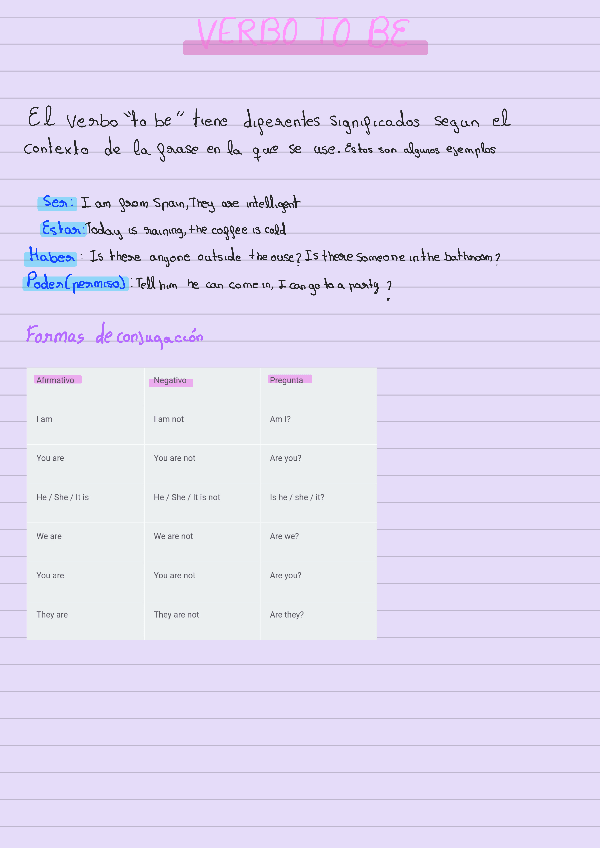 VERBO TO BE
El verbo "to be" tiene diferentes significados segun el
contexto de la frase en la que se use. Estos son algunos ejemplos
Ser: I am from Spain, They are intelligent
Estar: Today is raining, the coffee is cold
Haber: Is there anyone outside the ouse? Is there someone in the bathroom?
Poder(permiso): Tell him he can come in, I can go to a party?
Formas de conjugación
Afirmativo Negativo Pregunta
I am I am not Am I?
You are You are not Are you?
He / She / It is He / She / It is not Is he / she / it?
We are We are not Are we?
You are You are not Are you?
They are They are not Are they?